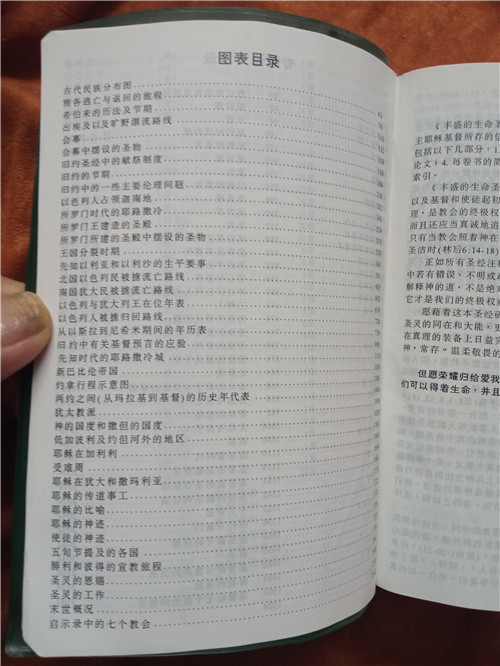 图表目录
古代民族分布图
雅各逃亡与返回的旅程
希伯来的历法及节期
出埃及以及旷野漂流路线
会幕
会幕中摆设的圣物
旧约圣经中的献祭制度
旧约的节期
旧约中的一些主要伦理问题
以色列人占领迦南地
所罗门时代的耶路撒冷
所罗门王建造的圣殿
所罗门所建的圣殿中摆设的圣物
王国分裂时期
先知以利亚和以利沙的生平要事
北国以色列民被掳流亡路线
南国犹大民被掳流亡路线
以色列与犹大列王在位年表
以色列人被掳归回路线
从以斯拉到尼希米期间的年历表
旧约中有关基督预言的应验
先知时代的耶路撒冷城
新巴比伦帝国
约拿行程示意图
两约之间(从玛拉基到基督)的历史年代表
犹太教派
神的国度和撒但的国度
低加波利及约但河外的地区
耶稣在加利利
受难周
耶稣在犹大和撒玛利亚
耶稣的传道事工
耶稣的比喻
耶稣的神迹
使徒的神迹
五旬节提及的各国
腓利和彼得的宣教旅程
圣灵的恩赐
圣灵的工作
末世概况
启示录中的七个教会
《丰盛的生命圣
主耶稣基督所存的信
包括以下几部分：1.
论文；4. 每卷书的简
索引。
《丰盛的生命圣
以及基督和使徒起初
理，是教会的终极权
而且还应当真诚地追
只有当教会照着神在
圣洁时(林后6:14-18)
正如所有圣经注释
中若有错误、不明或
解释神的道，不是绝对
它才是我们的终极权
愿藉着这本圣经研
圣灵的同在和大能，
在真理的装备上日益完
神，常存“温柔敬畏的
但愿荣耀归给爱我
们可以得着生命，并且